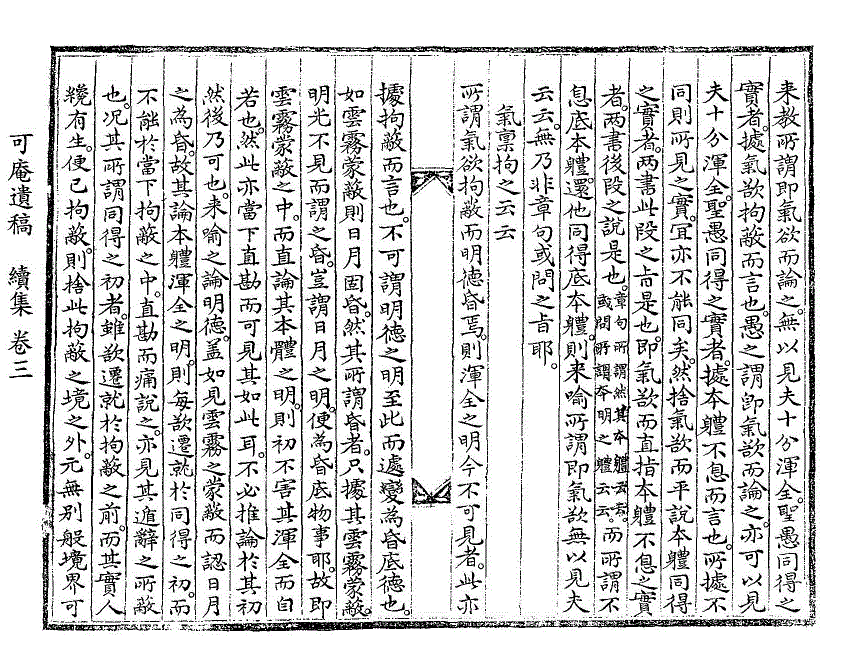 来教所謂即氣欲而論之。無以見夫十分渾全。聖愚同得之
實者。據氣欲拘蔽而言也。愚之謂即氣欲而論之。亦可以見
夫十分渾全。聖愚同得之實者。據本體不息而言也。所據不
同則所見之實。宜亦不能同矣。然捨氣欲而平說本體同得
之實者。两書此段之㫖是也。即氣欲而直指本體不息之實
者。两書後段之說是也。章句所謂然其本體云云。或問所謂本明之體云云。而所謂不
息底本體。還他同得底本體。則来喻所謂即氣欲無以見夫
云云。無乃非章句或問之㫖耶。
氣禀拘之云云
所謂氣欲拘蔽而明德昏焉。則渾全之明今不可見者。此亦
據拘蔽而言也。不可謂明德之明至此而遽變為昏底德也。
如雲霧蒙蔽則日月固昏。然其所謂昏者。只據其雲霧蒙蔽。
明光不見而謂之昏。豈謂日月之明。便為昏底物事耶。故即
雲霧蒙蔽之中。而直論其本體之明。則初不害其渾全而自
若也。然此亦當下直勘而可見其如此耳。不必推論於其初
然後乃可也。来喻之論明德。盖如見雲霧之蒙蔽而認日月
之為昏。故其論本體渾全之明。則每欲遷就於同得之初。而
不能於當下拘蔽之中。直勘而痛說之。亦見其遁辭之所蔽
也。况其所謂同得之初者。雖欲遷就於拘蔽之前。而其實人
纔有生。便已拘蔽。則捨此拘蔽之境之外。元無別般境界可
可庵遺稿 續集 卷三